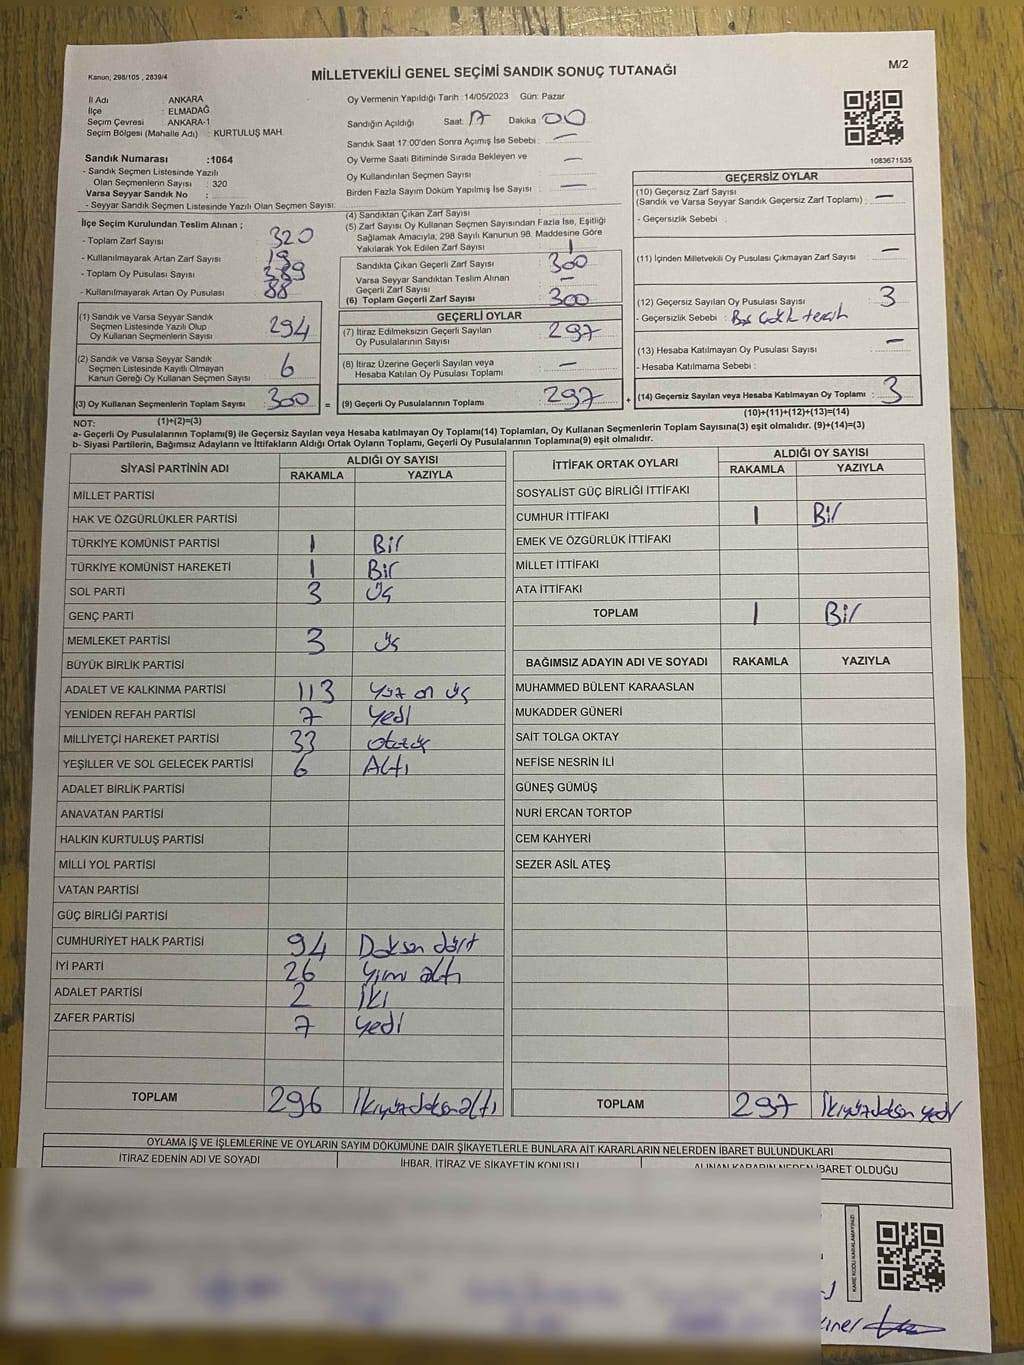 Kanun; 298/105 , 2839/4
MİLLETVEKİLİ GENEL SEÇİMİ SANDIK SONUÇ TUTANAĞI
M/2
İl Adı : ANKARA
İlçe : ELMADAĞ
Seçim Çevresi : ANKARA-1
Seçim Bölgesi (Mahalle Adı) : KURTULUŞ MAH.
Sandık Numarası :1064
- Sandık Seçmen Listesinde Yazılı
Olan Seçmenlerin Sayısı : 320
Varsa Seyyar Sandık No :
- Seyyar Sandık Seçmen Listesinde Yazılı Olan Seçmen Sayısı:
Oy Vermenin Yapıldığı Tarih :14/05/2023 Gün: Pazar
Sandığın Açıldığı Saat: 17 Dakika: 00
Sandık Saat 17.00'den Sonra Açımış İse Sebebi : —
Oy Verme Saati Bitiminde Sırada Bekleyen ve
Oy Kullandırılan Seçmen Sayısı : —
Birden Fazla Sayım Döküm Yapılmış İse Sayısı : —
1083671535
İlçe Seçim Kurulundan Teslim Alınan ;
- Toplam Zarf Sayısı : 320
- Kullanılmayarak Artan Zarf Sayısı : 19
- Toplam Oy Pusulası Sayısı : 389
- Kullanılmayarak Artan Oy Pusulası : 88
(1) Sandık ve Varsa Seyyar Sandık
Seçmen Listesinde Yazılı Olup
Oy Kullanan Seçmenlerin Sayısı : 294
(2) Sandık ve Varsa Seyyar Sandık
Seçmen Listesinde Kayıtlı Olmayan
Kanun Gereği Oy Kullanan Seçmen Sayısı : 6
(3) Oy Kullanan Seçmenlerin Toplam Sayısı : 300 =
(1)+(2)=(3)
(4) Sandıktan Çıkan Zarf Sayısı :
(5) Zarf Sayısı Oy Kullanan Seçmen Sayısından Fazla İse, Eşitliği
Sağlamak Amacıyla, 298 Sayılı Kanunun 98. Maddesine Göre
Yakılarak Yok Edilen Zarf Sayısı : 1
Sandıkta Çıkan Geçerli Zarf Sayısı : 300
Varsa Seyyar Sandıktan Teslim Alınan
Geçerli Zarf Sayısı : —
(6) Toplam Geçerli Zarf Sayısı : 300
GEÇERLİ OYLAR
(7) İtiraz Edilmeksizin Geçerli Sayılan
Oy Pusulalarının Sayısı : 297
(8) İtiraz Üzerine Geçerli Sayılan veya
Hesaba Katılan Oy Pusulası Toplamı : —
(9) Geçerli Oy Pusulalarının Toplamı : 297 +
GEÇERSİZ OYLAR
(10) Geçersiz Zarf Sayısı
(Sandık ve Varsa Seyyar Sandık Geçersiz Zarf Toplamı) : —
- Geçersizlik Sebebi :
(11) İçinden Milletvekili Oy Pusulası Çıkmayan Zarf Sayısı : —
(12) Geçersiz Sayılan Oy Pusulası Sayısı : 3
- Geçersizlik Sebebi : Boş tercih
(13) Hesaba Katılmayan Oy Pusulası Sayısı : —
- Hesaba Katılmama Sebebi :
(14) Geçersiz Sayılan veya Hesaba Katılmayan Oy Toplamı : 3
(10)+(11)+(12)+(13)=(14)
NOT:
a- Geçerli Oy Pusulalarının Toplamı(9) ile Geçersiz Sayılan veya Hesaba katılmayan Oy Toplamı(14) Toplamları, Oy Kullanan Seçmenlerin Toplam Sayısına(3) eşit olmalıdır. (9)+(14)=(3)
b- Siyasi Partilerin, Bağımsız Adayların ve İttifakların Aldığı Ortak Oyların Toplamı, Geçerli Oy Pusulalarının Toplamına(9) eşit olmalıdır.
SİYASİ PARTİNİN ADI ALDIĞI OY SAYISI
RAKAMLA YAZIYLA
MİLLET PARTİSİ
HAK VE ÖZGÜRLÜKLER PARTİSİ
TÜRKİYE KOMÜNİST PARTİSİ 1 Bir
TÜRKİYE KOMÜNİST HAREKETİ 1 Bir
SOL PARTİ 3 Üç
GENÇ PARTİ
MEMLEKET PARTİSİ 3 üç
BÜYÜK BİRLİK PARTİSİ
ADALET VE KALKINMA PARTİSİ 113 Yüz on üç
YENİDEN REFAH PARTİSİ 7 yedi
MİLLİYETÇİ HAREKET PARTİSİ 33 otuzüç
YEŞİLLER VE SOL GELECEK PARTİSİ 6 Altı
ADALET BİRLİK PARTİSİ
ANAVATAN PARTİSİ
HALKIN KURTULUŞ PARTİSİ
MİLLİ YOL PARTİSİ
VATAN PARTİSİ
GÜÇ BİRLİĞİ PARTİSİ
CUMHURİYET HALK PARTİSİ 94 Doksan dört
İYİ PARTİ 26 yirmi altı
ADALET PARTİSİ 2 iki
ZAFER PARTİSİ 7 yedi
TOPLAM 296 İkiyüzdoksanaltı
İTTİFAK ORTAK OYLARI ALDIĞI OY SAYISI
RAKAMLA YAZIYLA
SOSYALİST GÜÇ BİRLİĞİ İTTİFAKI
CUMHUR İTTİFAKI 1 Bir
EMEK VE ÖZGÜRLÜK İTTİFAKI
MİLLET İTTİFAKI
ATA İTTİFAKI
TOPLAM 1 Bir
BAĞIMSIZ ADAYIN ADI VE SOYADI RAKAMLA YAZIYLA
MUHAMMED BÜLENT KARAASLAN
MUKADDER GÜNERİ
SAİT TOLGA OKTAY
NEFİSE NESRİN İLİ
GÜNEŞ GÜMÜŞ
NURİ ERCAN TORTOP
CEM KAHYERİ
SEZER ASİL ATEŞ
TOPLAM 297 İkiyüzdoksan yedi
OYLAMA İŞ VE İŞLEMLERİNE VE OYLARIN SAYIM DÖKÜMÜNE DAİR ŞİKAYETLERLE BUNLARA AİT KARARLARIN NELERDEN İBARET BULUNDUKLARI
İTİRAZ EDENİN ADI VE SOYADI İHBAR, İTİRAZ VE ŞİKAYETİN KONUSU ALINAN KARARIN NEDEN İBARET OLDUĞU
KARE KODU KARALAMAYINIZ!